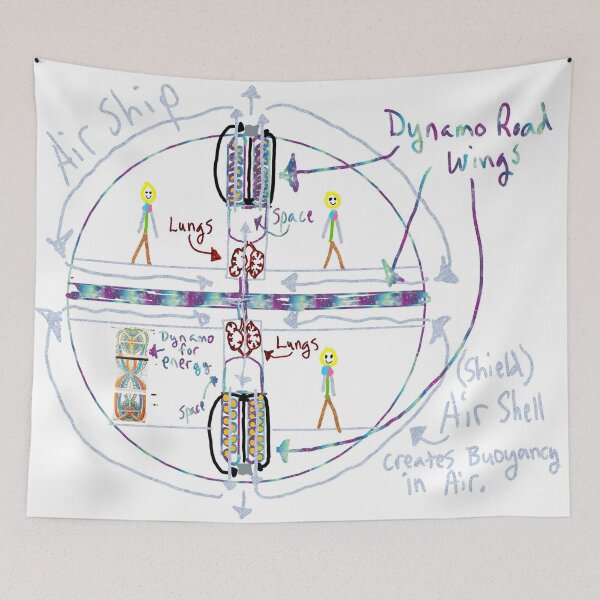 Air Ship
Dynamo Road
Wings
Space
Lungs
Lungs
Dynamo
for
energy
Space
(Shield)
Air Shell
Creates Buoyancy
in Air.